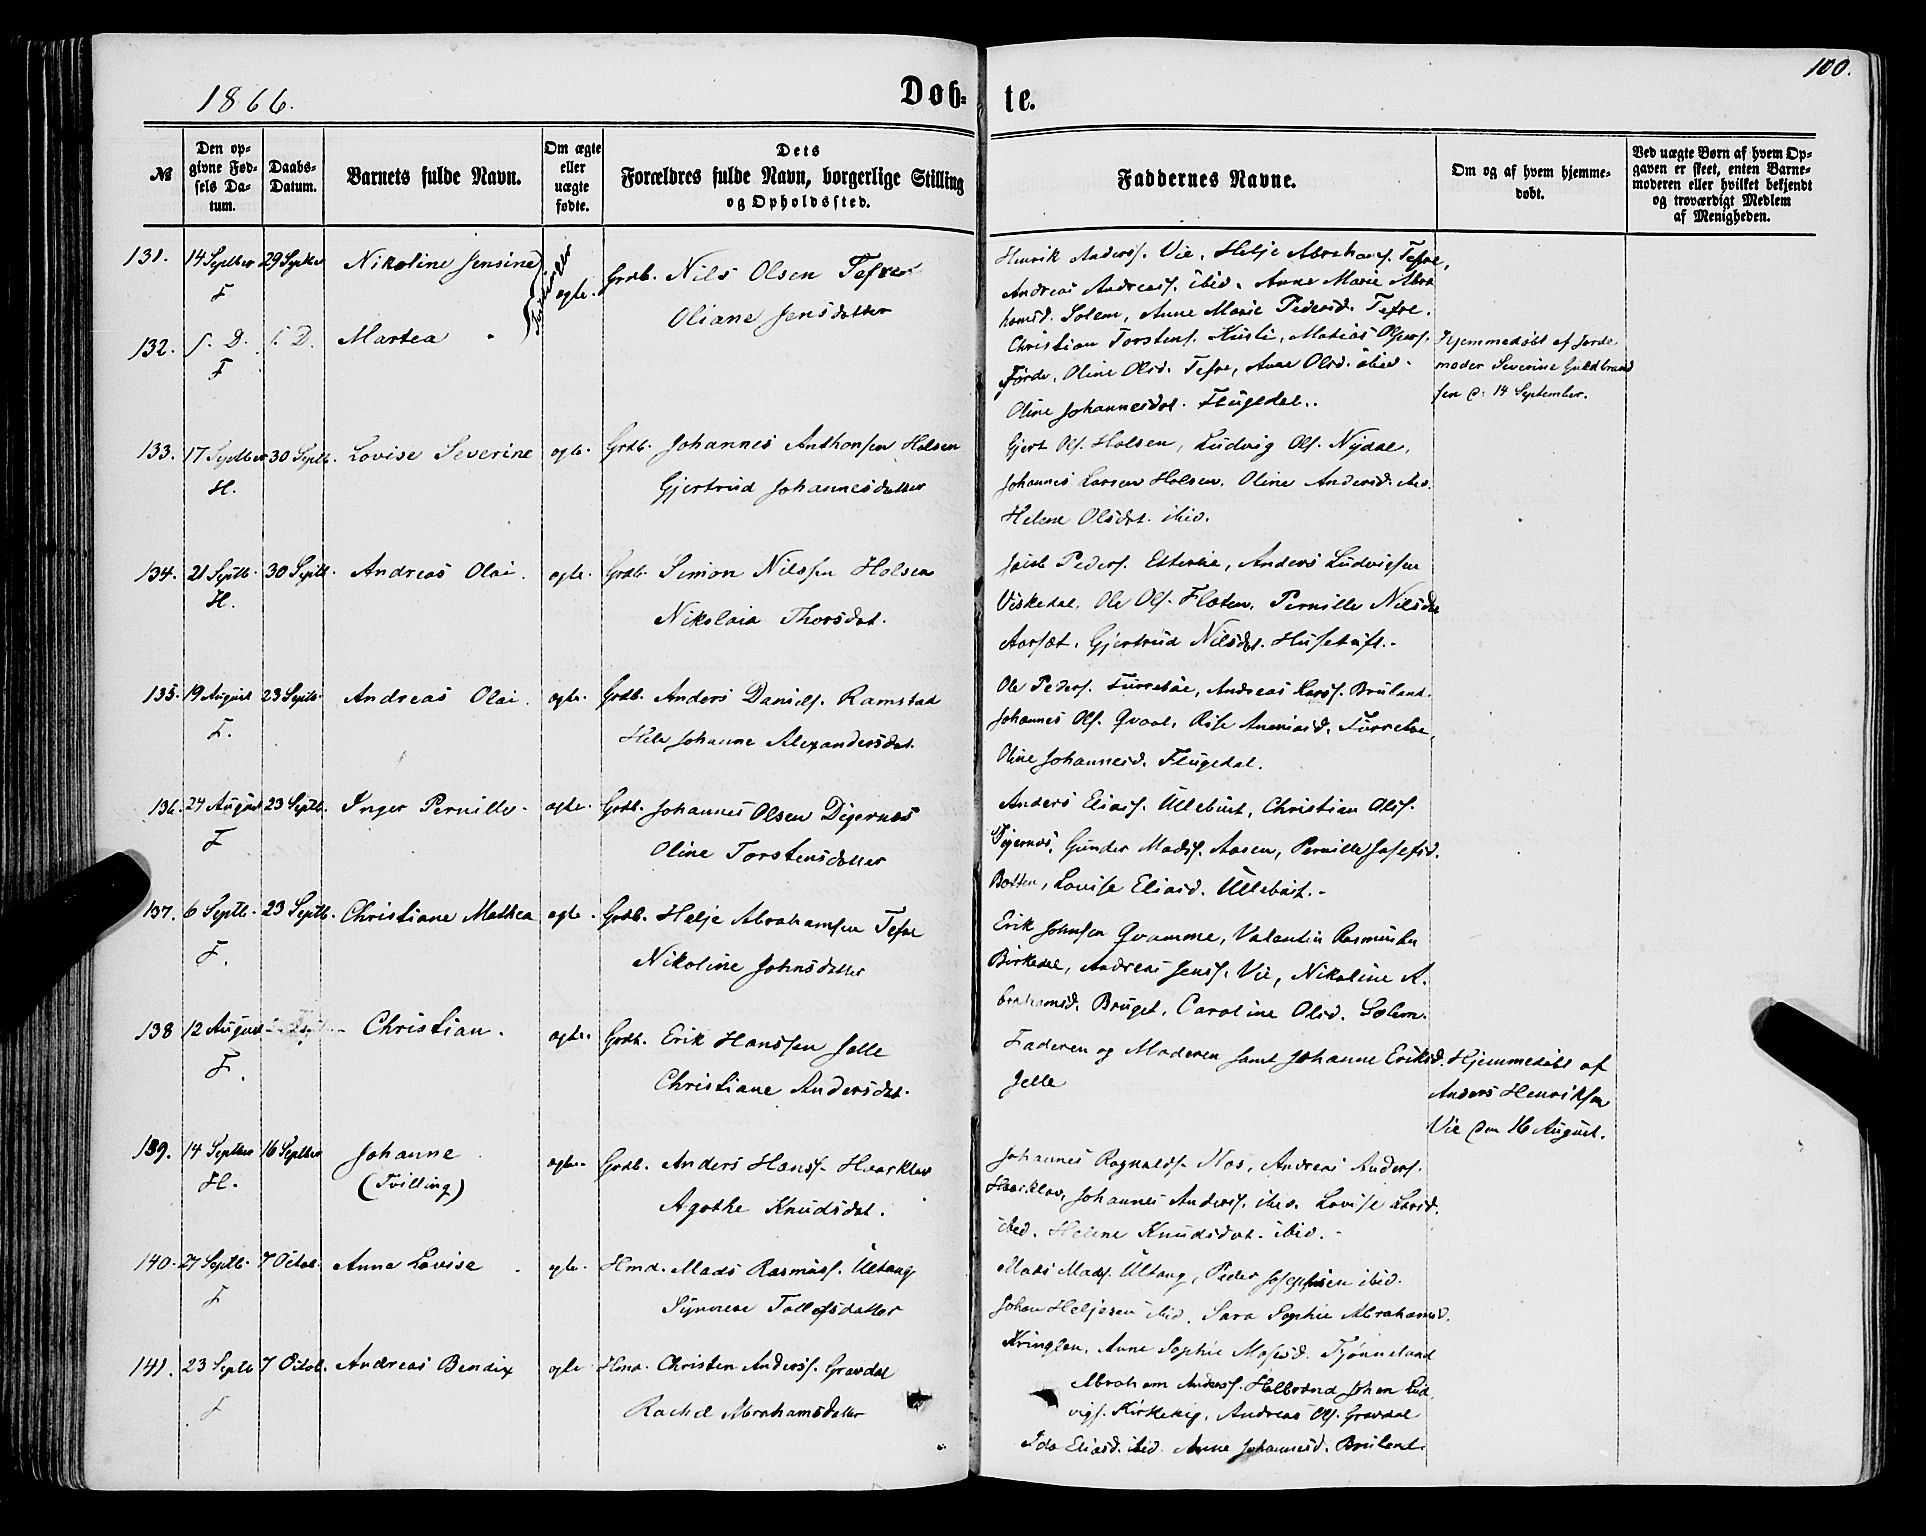 1866.
Døb-
te.
100.
№
Den op-
givne Fød-
sels Da-
tum.
Daabs-
Datum.
Barnets fulde Navn.
Om ægte
eller
uægte
fødte.
Dets
Forældres fulde Navn, borgerlige Stilling
og Opholdssted.
Faddernes Navne.
Om og af hvem hjemme-
døbt.
Ved uægte Børn af hvem Op-
gaven er skeet, enten Barne-
moderen eller hvilket bekjendt
og troværdigt Medlem
af Menigheden.
131. 14 Septber 29 Septber Nikoline Jensine ægte. Grdb. Nils Olsen Tefre
F
Oliane Jensdatter
Henrik Anders. Vie, Helje Abrahams. Tefre,
Andreas Andreass. ibid. Anne Marie Abra
hamsd. Solem, Anne Marie Pedersd. Tefre.
132. s. D. s. D. Martea
F
Christian Torstens. Husli, Matias Olsens.
Førde, Oline Olsd. Tefre, Anne Olsd. ibid.
Oline Johannesdat. Flugedal..
Hjemmedøbt af Jorde
moder Severine Guldbrand
sen d. 14 September.
133. 17 Septber 30 Septb. Lovise Severine ægte. Grdb. Johannes Anthonsen Holsen
H.
Gjertrud Johannesdatter
Gjert Ols. Holsen, Ludvig Ols. Nydal,
Johannes Larsen Holsen, Oline Andersd. ibid.
Helene Olsdat. ibid.
134. 21 Septb. 30 Septb. Andreas Olai. ægte. Grdb. Simon Nilssen Holsen
H.
Nikolaia Thorsdat.
Jacob Peders. Espelie, Anders Ludvigsen
Viskedal, Ole Ols. Flaten, Pernille Nilsdat
Aarsæt, Gjertrud Nilsdat. Husetuft.
135. 19 August 23 Septb. Andreas Olai. ægte. Grdb. Anders Daniels. Ramstad
F.
Hele Johanne Alexandersdat.
Ole Peders. Furrebøe, Andreas Lars. Bruland.
Johannes Ols. Qvaal, Rise Ananiasd. Furrebøe,
Oline Johannesd. Flugedal.
136. 24 August 23 Septb. Inger Pernille. ægte. Grdb. Johannes Olsen Digernæs
F
Oline Torstensdatter
Anders Eliass. Ullebust, Christian Ols.
Digernæs, Gunder Mads. Aasen, Pernille Josefsd.
Botten, Lovise Eliasd. Ullebust.
137. 6 Septb. 23 Septb. Christiane Mathea ægte. Grdb. Helje Abrahamsen Tefre
F.
Nikoline Johnsdatter
Erik Johnsen Qvamme, Valentin Rasmussen
Birkedal, Andreas Jens. Vie, Nikoline A.
brahamsd. Bruget, Caroline Olsd. Solem.
138 12 August Christian. ægte. Grdb. Erik Hanssen Jelle
F.
Christiane Andersdat.
Faderen og Moderen samt Johanne Eriksd.
Jelle
Hjemmedøbt af
Anders Henriksen
Vie den 16 August.
139. 14 Septber 16 Septber Johanne ægte. Grdb. Anders Hans. Haarklav
H.
(Tvilling)
Agathe Knudsdat.
Johannes Ragnalds. Nos, Andreas Anders.
Haarklav, Johannes Anders. ibid. Lovise Larsd.
ibid. Helene Knudsdat. ibid.
140. 27 Septb. 7 Octob. Anne Lovise ægte. Hmd. Mads Rasmus. Ultang
F
Synneve Tollefsdatter
Mads Mads. Ultang, Peder Josephsen ibid.
Johan Heljesen ibid. Sara Sophie Abrahamsd.
Kringlen, Anne Sophie Mosesd. Tjønneland
141. 23 Septb 7 Octob. Andreas Bendix ægte Hmd. Christen Anders. Gravdal
F
Rachel Abrahamsdatter
Abraham Anders. Halbrend Johan Lud
vigs. Kirkeeig, Andreas Ols. Gravdal
Ida Eliasd. ibid. Anne Johannesd. Bruland.